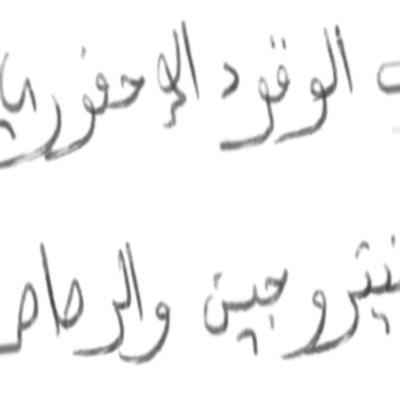 الوقود الإحفوري
نيتروجين والرصاص